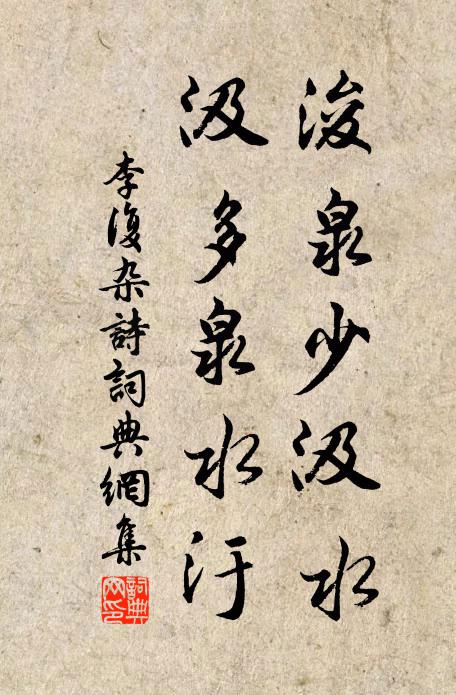 浚泉少汲水
汲多泉水汙
李復杂詩詞典網集
詞典網印